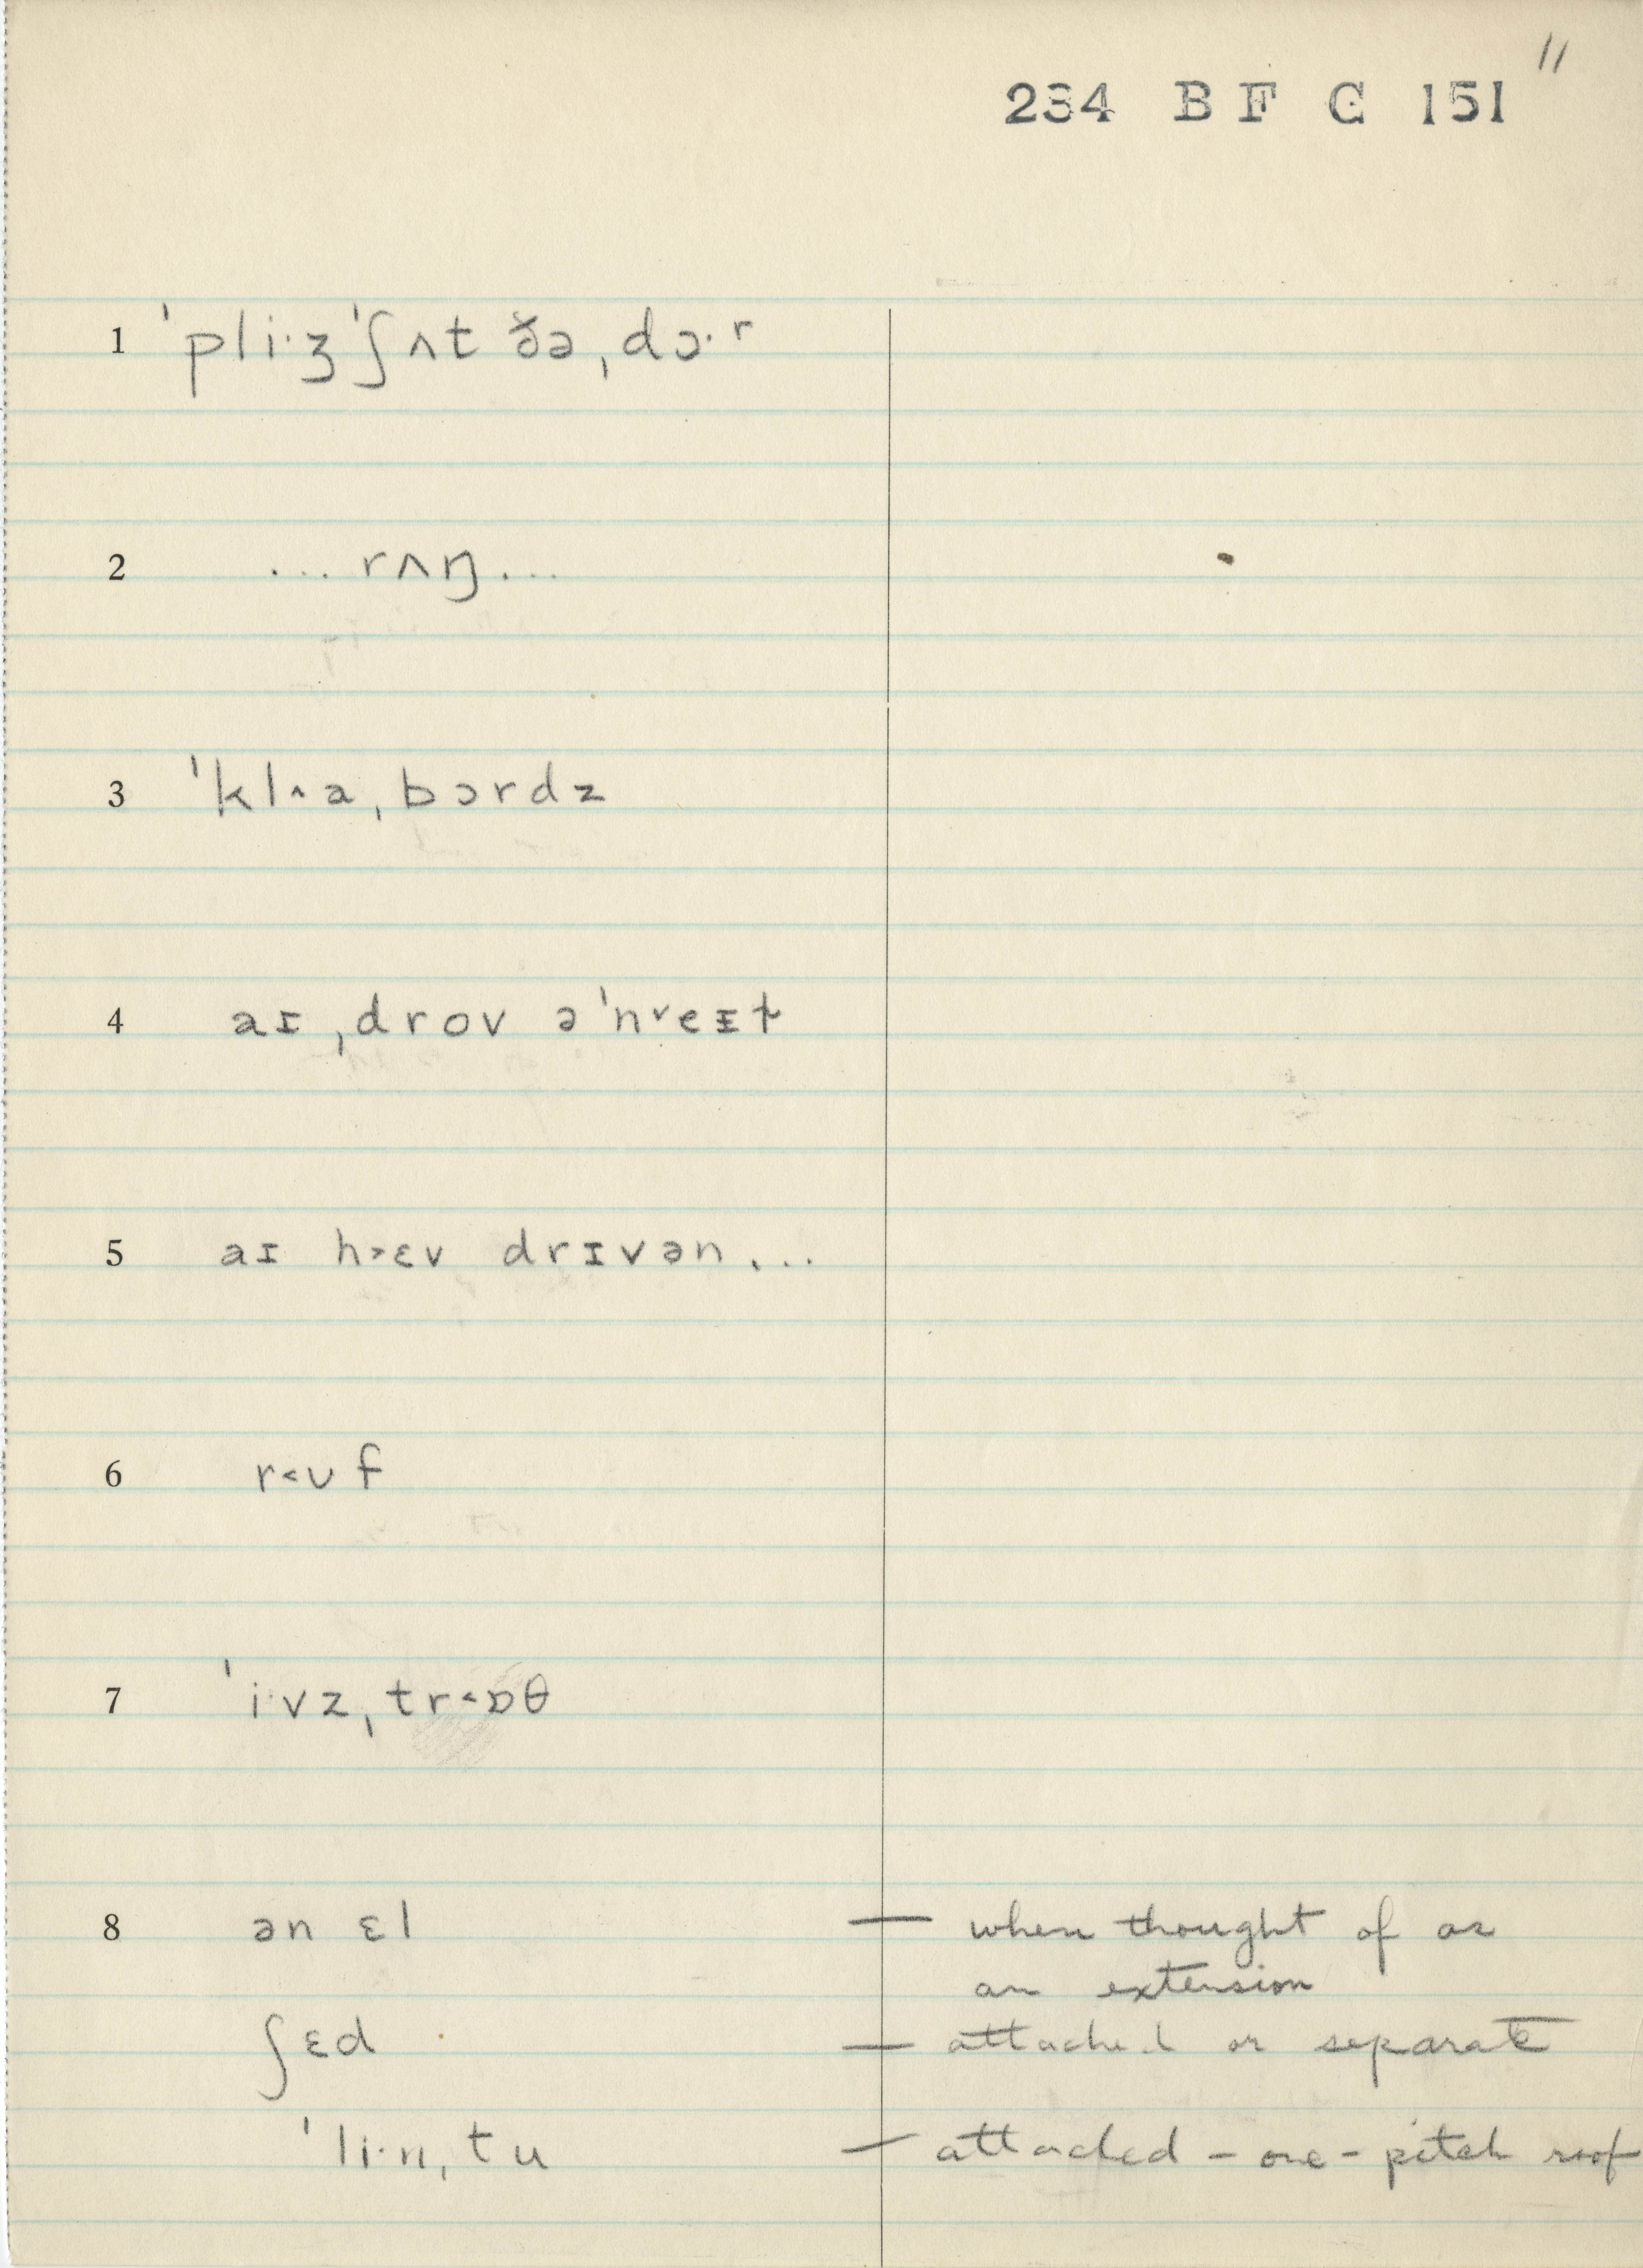 11
234 B F C 151
1 ˈpli·ʒ ˈʃʌt ðə ˌdɔ·r
2 ... rʌŋ ...
3 ˈkl^a ˌbɔrdz
4 aɪ ˌdrov ə ˈn˅eɪt
5 aɪ h>ɛv drɪvən ...
6 r<ᴜf
7 ˈi·vz ˌtr<ɒθ
8 ən ɛl — when thought of as
an extension
ʃɛd — attached or separate
ˈli·n ˌtu — attached – one-pitch roof